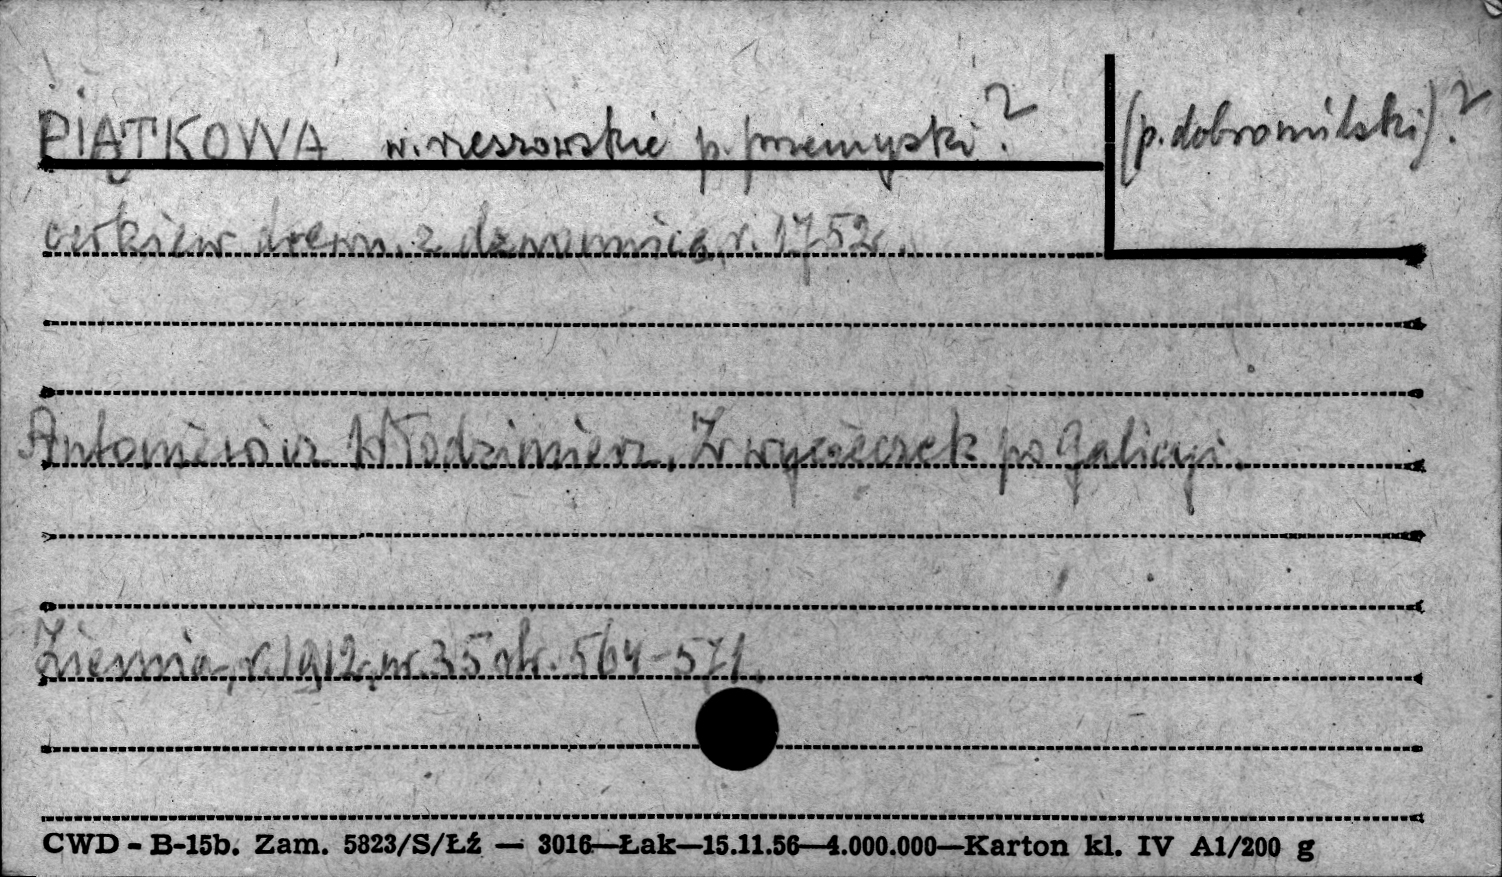 PIĄTKOWA w. rzeszowskie p. przemyski? (p. dobromilski)?
cerkiew drewn. z dzwonnicą, r. 1752.
Antoniewicz Włodzimierz, Z wycieczek po Galicyi.
Ziemia, r. 1912, nr. 35 str. 564-571.
CWD - B-15b. Zam. 5823/S/Łź — 3016—Łak—15.11.56—4.000.000—Karton kl. IV A1/200 g